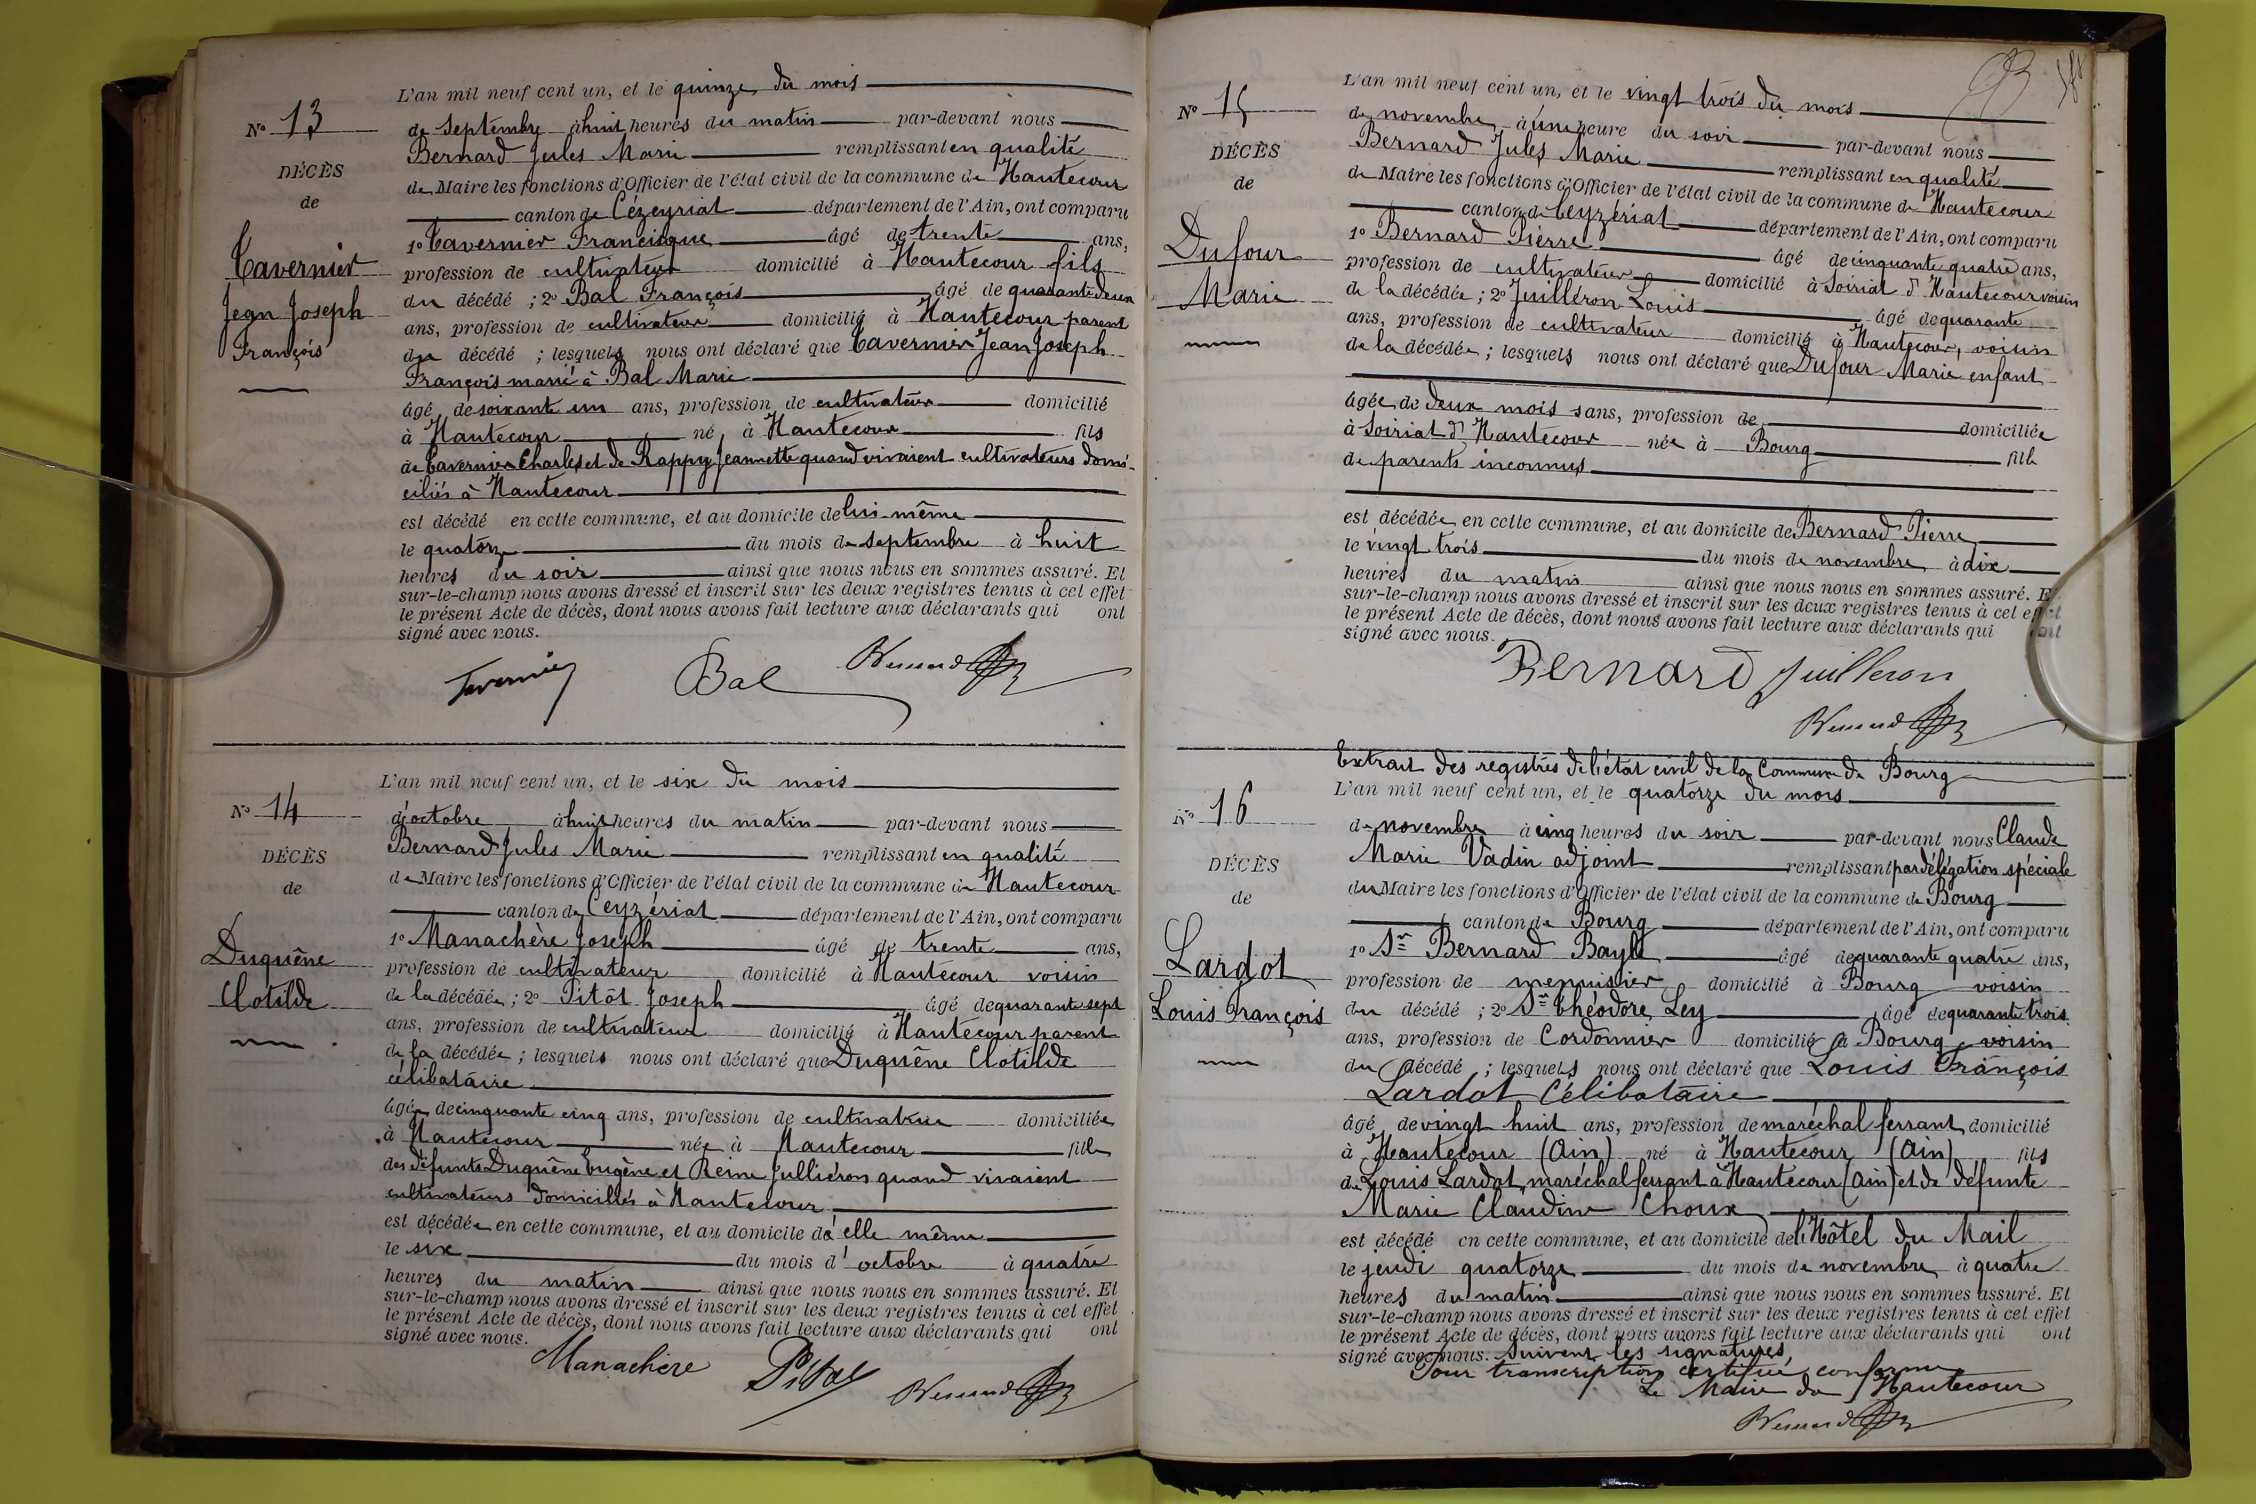 L'an mil neuf cent un, et le quinze du mois
N° 13
de septembre à huit heures du matin par-devant nous
Bernard Jules Marie remplissant en qualité
DÉCÈS
de Maire les fonctions d'Officier de l'état civil de la commune de Hautecour
de
canton de Cézeyriat département de l'Ain, ont comparu
Tavernier
Jean Joseph
François
1° Tavernier Francisque âgé de trente ans,
profession de cultivateur domicilié à Hautecour fils
du décédé ; 2° Bal François âgé de quarante deux
ans, profession de cultivateur domicilié à Hautecour parent
du décédé ; lesquels nous ont déclaré que Tavernier Jean Joseph
François marié à Bal Marie
âgé de soixante un ans, profession de cultivateur domicilié
à Hautecour né à Hautecour fils
de Tavernier Charles et de Rappy Jeannette quand vivaient cultivateurs domi-
ciliés à Hautecour
est décédé en cette commune, et au domicile de lui même
le quatorze du mois de septembre à huit
heures du soir ainsi que nous nous en sommes assuré. Et
sur-le-champ nous avons dressé et inscrit sur les deux registres tenus à cet effet
le présent Acte de décès, dont nous avons fait lecture aux déclarants qui ont
signé avec nous.
Tavernier Bal Bernard
L'an mil neuf cent un, et le six du mois
N° 14
d'octobre à huit heures du matin par-devant nous
Bernard Jules Marie remplissant en qualité
DÉCÈS
de Maire les fonctions d'Officier de l'état civil de la commune de Hautecour
de
canton de Ceyzériat département de l'Ain, ont comparu
Duquêne
Clotilde
1° Manachère Joseph âgé de trente ans,
profession de cultivateur domicilié à Hautecour voisin
de la décédée ; 2° Pitôt Joseph âgé de quarante sept
ans, profession de cultivateur domicilié à Hautecour parent
de la décédée ; lesquels nous ont déclaré que Duquêne Clotilde
célibataire
âgée de cinquante cinq ans, profession de cultivatrice domiciliée
à Hautecour née à Hautecour fille
des défunts Duquêne Eugène et Reine Julliéron quand vivaient
cultivateurs domiciliés à Hautecour
est décédée en cette commune, et au domicile d'elle même
le six du mois d'octobre à quatre
heures du matin ainsi que nous nous en sommes assuré. Et
sur-le-champ nous avons dressé et inscrit sur les deux registres tenus à cet effet
le présent Acte de décès, dont nous avons fait lecture aux déclarants qui ont
signé avec nous.
Manachère Pitot Bernard
L'an mil neuf cent un, et le vingt trois du mois
N° 15
de novembre à une heure du soir par-devant nous
DÉCÈS
Bernard Jules Marie remplissant en qualité
de
de Maire les fonctions d'Officier de l'état civil de la commune de Hautecour
canton de Ceyzériat département de l'Ain, ont comparu
Dufour
Marie
1° Bernard Pierre âgé de cinquante quatre ans,
profession de cultivateur domicilié à Soiriat d'Hautecour voisin
de la décédée ; 2° Juilléron Louis âgé de quarante
ans, profession de cultivateur domicilié à Hautecour, voisin
de la décédée ; lesquels nous ont déclaré que Dufour Marie enfant
âgée de deux mois sans, profession de domiciliée
à Soiriat d'Hautecour née à Bourg fille
de parents inconnus
est décédée en cette commune, et au domicile de Bernard Pierre
le vingt trois du mois de novembre à dix
heures du matin ainsi que nous nous en sommes assuré. E
sur-le-champ nous avons dressé et inscrit sur les deux registres tenus à cet effet
le présent Acte de décès, dont nous avons fait lecture aux déclarants qui ont
signé avec nous.
Bernard Juilleron
Bernard
Extrait des registres de l'état civil de la Commune de Bourg
L'an mil neuf cent un, et le quatorze du mois
N° 16
de novembre à cinq heures du soir par-devant nous Claude
DÉCÈS
Marie Vadin adjoint remplissant par délégation spéciale
de
du Maire les fonctions d'Officier de l'état civil de la commune de Bourg
canton de Bourg département de l'Ain, ont comparu
Lardot
Louis François
1° Sr Bernard Bayle âgé de quarante quatre ans,
profession de menuisier domicilié à Bourg voisin
du décédé ; 2° Sr Théodore Ley âgé de quarante trois
ans, profession de Cordonnier domicilié à Bourg voisin
du décédé ; lesquels nous ont déclaré que Louis François
Lardot Célibataire
âgé de vingt huit ans, profession de maréchal ferrant domicilié
à Hautecour (Ain) né à Hautecour (Ain) fils
de Louis Lardot, maréchal ferrant à Hautecour (Ain) et de défunte
Marie Claudine Choux
est décédé en cette commune, et au domicile de l'Hôtel du Mail
le jeudi quatorze du mois de novembre à quatre
heures du matin ainsi que nous nous en sommes assuré. Et
sur-le-champ nous avons dressé et inscrit sur les deux registres tenus à cet effet
le présent Acte de décès, dont nous avons fait lecture aux déclarants qui ont
signé avec nous. Suivent les signatures
Pour transcription certifiée conforme
Le Maire de Hautecour
Bernard